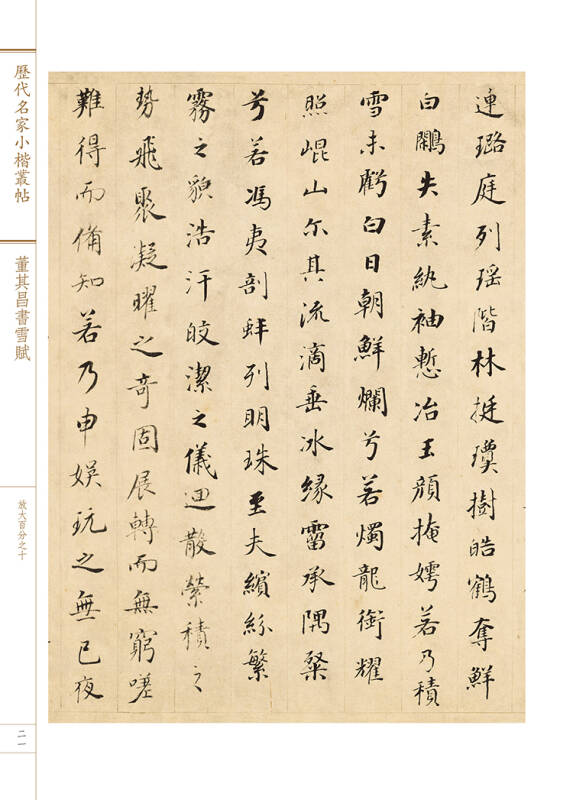 連璐庭列瑶階林挺瓊樹皓鶴奪鮮
白鷴失素紈袖慙冶玉顏掩嫮若乃積
雪未虧白日朝鮮爛兮若燭龍銜耀
照崐山尔其流滴垂冰緣霤承隅粲
兮若馮夷剖蚌列明珠至夫繽紛繁
霧之貌浩汗皎潔之儀迴散縈積之
勢飛聚凝曜之奇固展轉而無窮嗟
難得而俻知若乃申娛玩之無已夜
歷代名家小楷叢帖
董其昌書雪賦
放大百分之十
二一